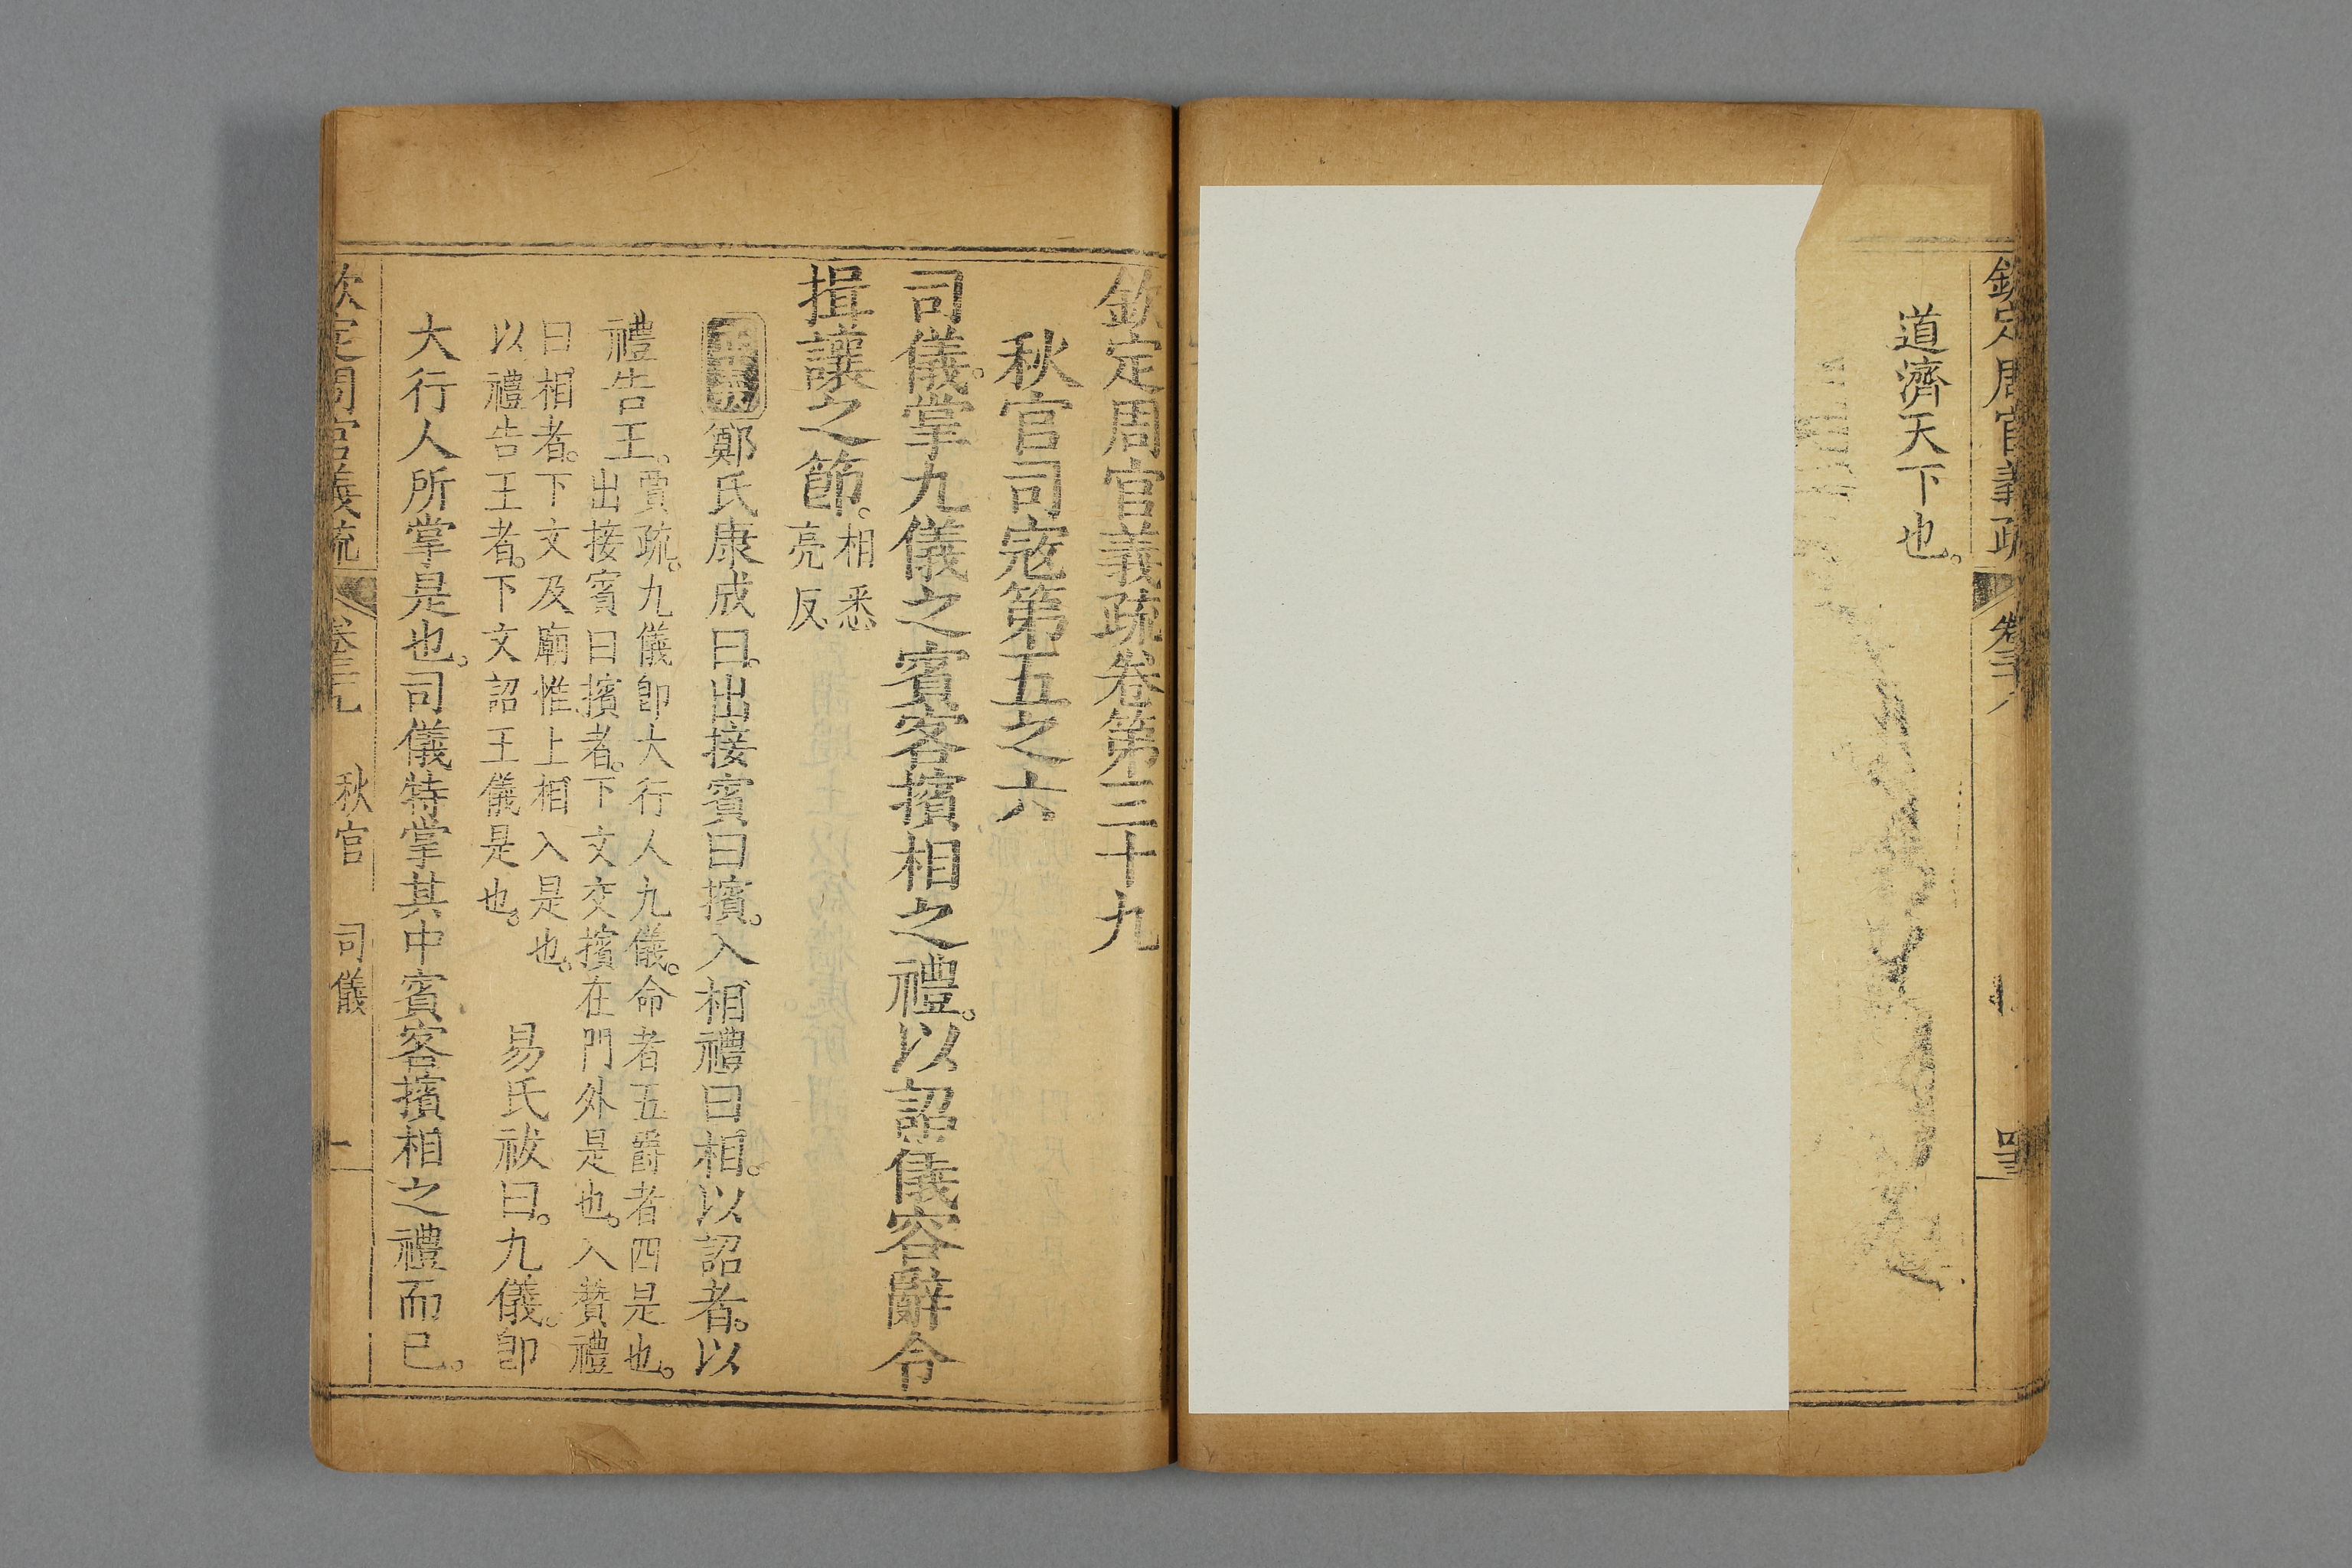 欽定周官義疏 卷三十八
道濟天下也。
欽定周官義疏卷第三十九
秋官司寇第五之六
司儀。掌九儀之賓客擯相之禮。以詔儀容辭令
揖讓之節。相悉
亮反
鄭氏康成曰。出接賓曰擯。入相禮曰相。以詔者。以
禮告王。賈疏。九儀卽大行人九儀。命者五爵者四是也。
出接賓曰擯者。下文交擯在門外是也。入贊禮
曰相者。下文及廟惟上相入是也。
以禮告王者。下文詔王儀是也。
易氏祓曰。九儀。卽
大行人所掌是也。司儀特掌其中賓客擯相之禮而已。
欽定周官義疏 卷三十九 秋官 司儀 一